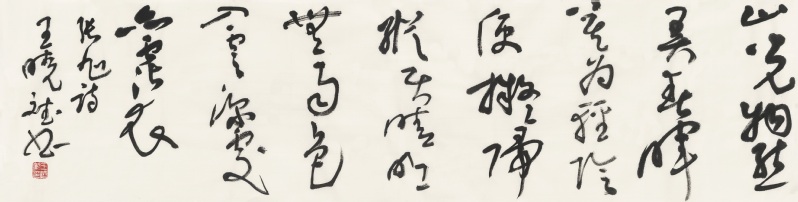 山光物態
弄春暉
莫為輕陰
便擬歸
縱使晴明
無雨色
入雲深處
亦霑衣
張旭詩
王曉書